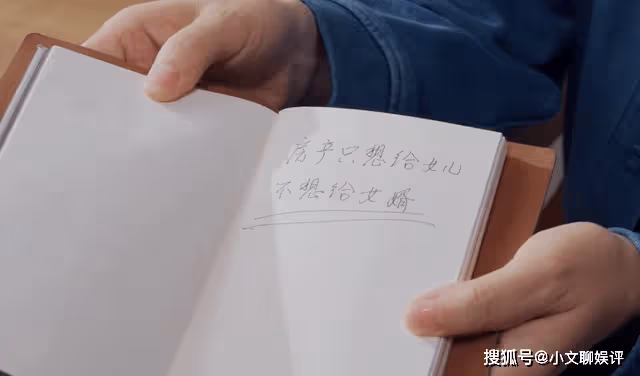 房产只想给女儿
不想给女婿
搜狐号@小文聊娱评